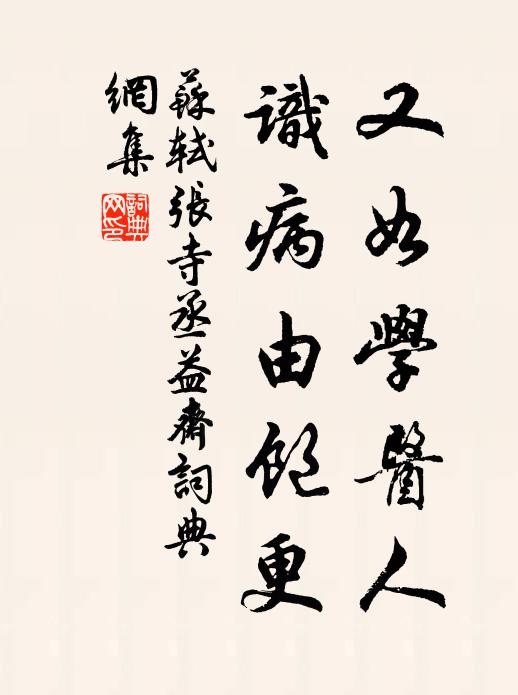 又如學醫人
識病由飽更
蘇軾張寺丞益齋詞典
網集
詞典网印